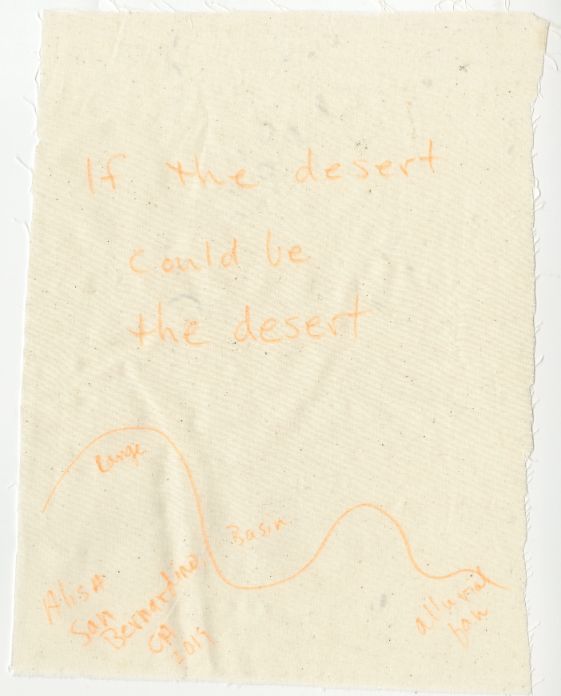 If the desert
could be
the desert
Range
Basin
alluvial
fan
Alisa
San
Bernardino
CA
2019